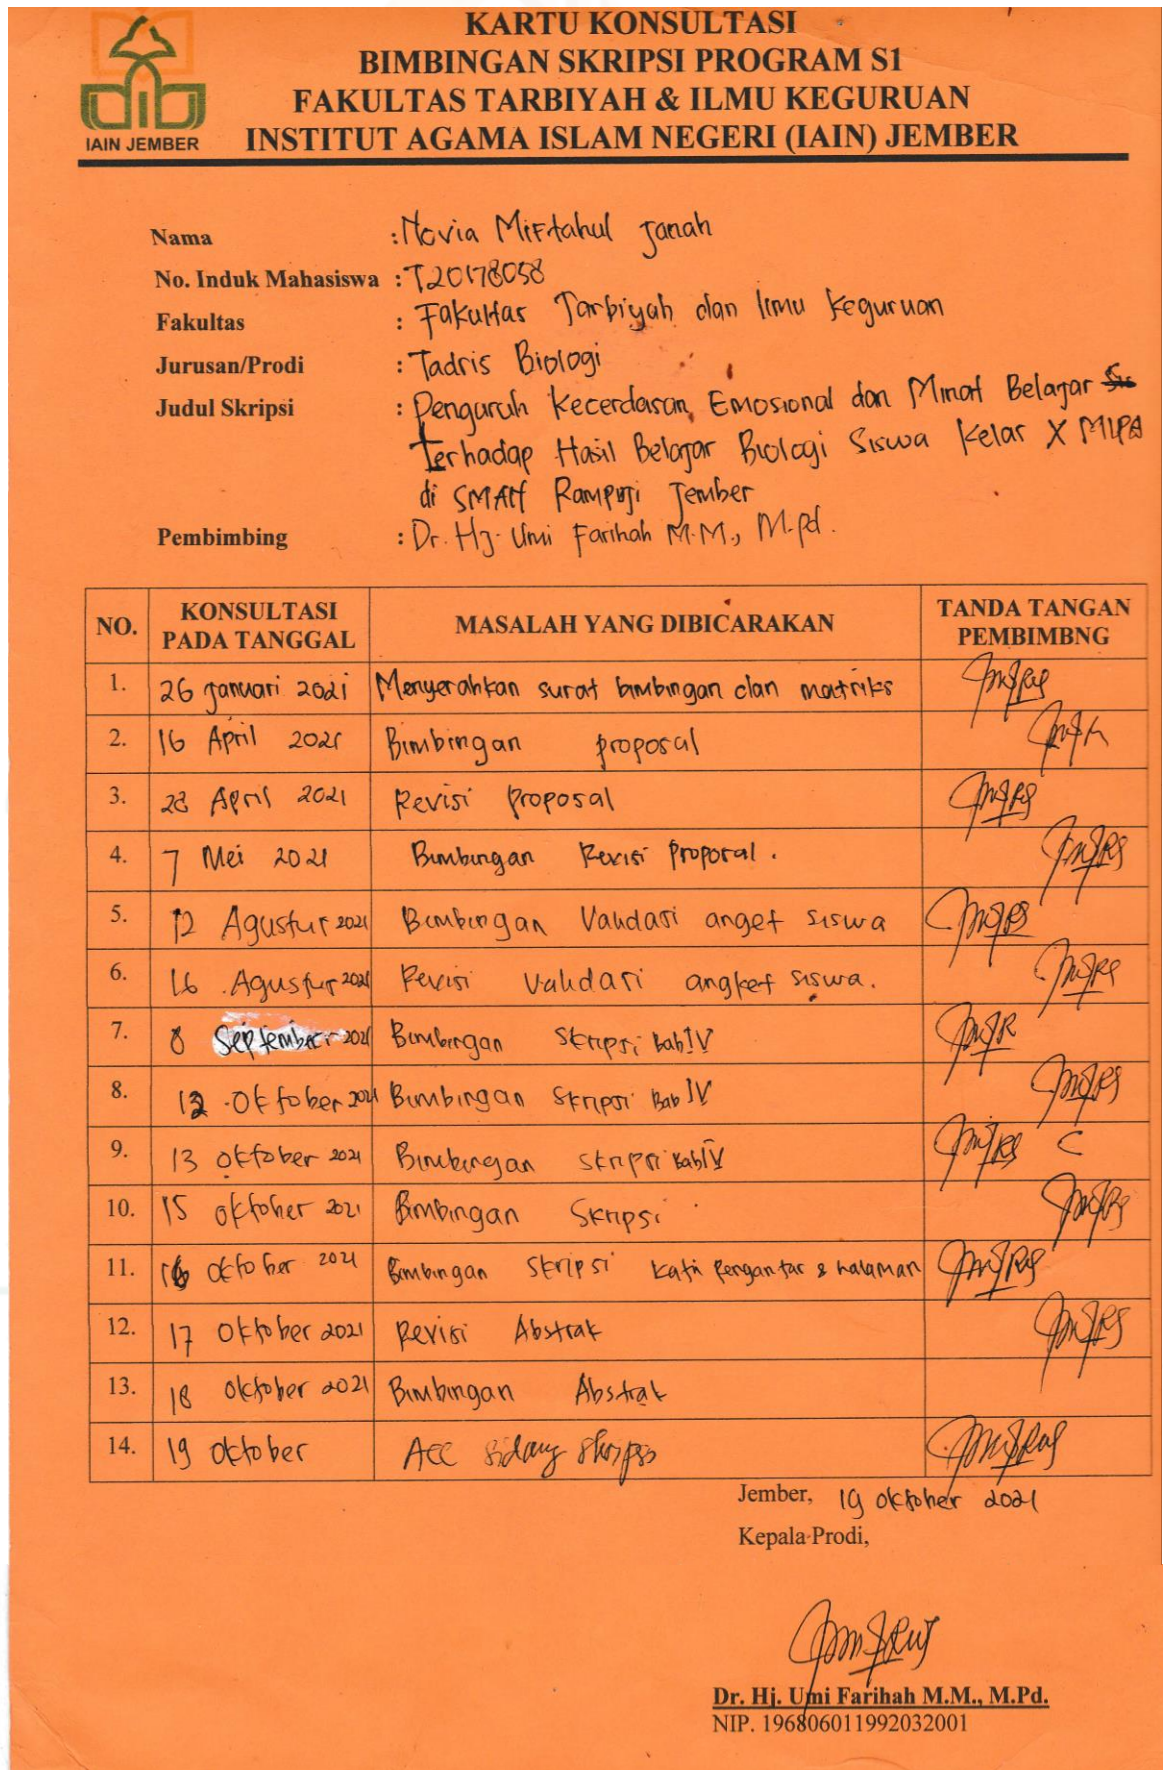 KARTU KONSULTASI
BIMBINGAN SKRIPSI PROGRAM S1
FAKULTAS TARBIYAH & ILMU KEGURUAN
INSTITUT AGAMA ISLAM NEGERI (IAIN) JEMBER
IAIN JEMBER
Nama : Novia Miftahul Janah
No. Induk Mahasiswa : T20178058
Fakultas : Fakultas Tarbiyah dan Ilmu Keguruan
Jurusan/Prodi : Tadris Biologi
Judul Skripsi : Pengaruh Kecerdasan Emosional dan Minat Belajar
terhadap Hasil Belajar Biologi Siswa Kelas X MIPA
di SMAN Rampuji Jember
Pembimbing : Dr. Hj. Umi Farihah M.M., M.Pd.
NO. KONSULTASI PADA TANGGAL MASALAH YANG DIBICARAKAN TANDA TANGAN PEMBIMBNG
1. 26 Januari 2021 Menyerahkan surat bimbingan dan matriks
2. 16 April 2021 Bimbingan proposal
3. 28 April 2021 Revisi proposal
4. 7 Mei 2021 Bimbingan Revisi proposal.
5. 12 Agustus 2021 Bimbingan Validasi anget siswa
6. 16 Agustus 2021 Revisi Validasi angket siswa.
7. 8 September 2021 Bimbingan Skripsi Bab IV
8. 12 Oktober 2021 Bimbingan Skripsi Bab IV
9. 13 Oktober 2021 Bimbingan Skripsi Bab IV
10. 15 Oktober 2021 Bimbingan Skripsi
11. 16 Oktober 2021 Bimbingan Skripsi Kata Pengantar & halaman
12. 17 Oktober 2021 Revisi Abstrak
13. 18 Oktober 2021 Bimbingan Abstrak
14. 19 Oktober Acc Sidang Skripsi
Jember, 19 Oktober 2021
Kepala Prodi,
Dr. Hj. Umi Farihah M.M., M.Pd.
NIP. 196806011992032001